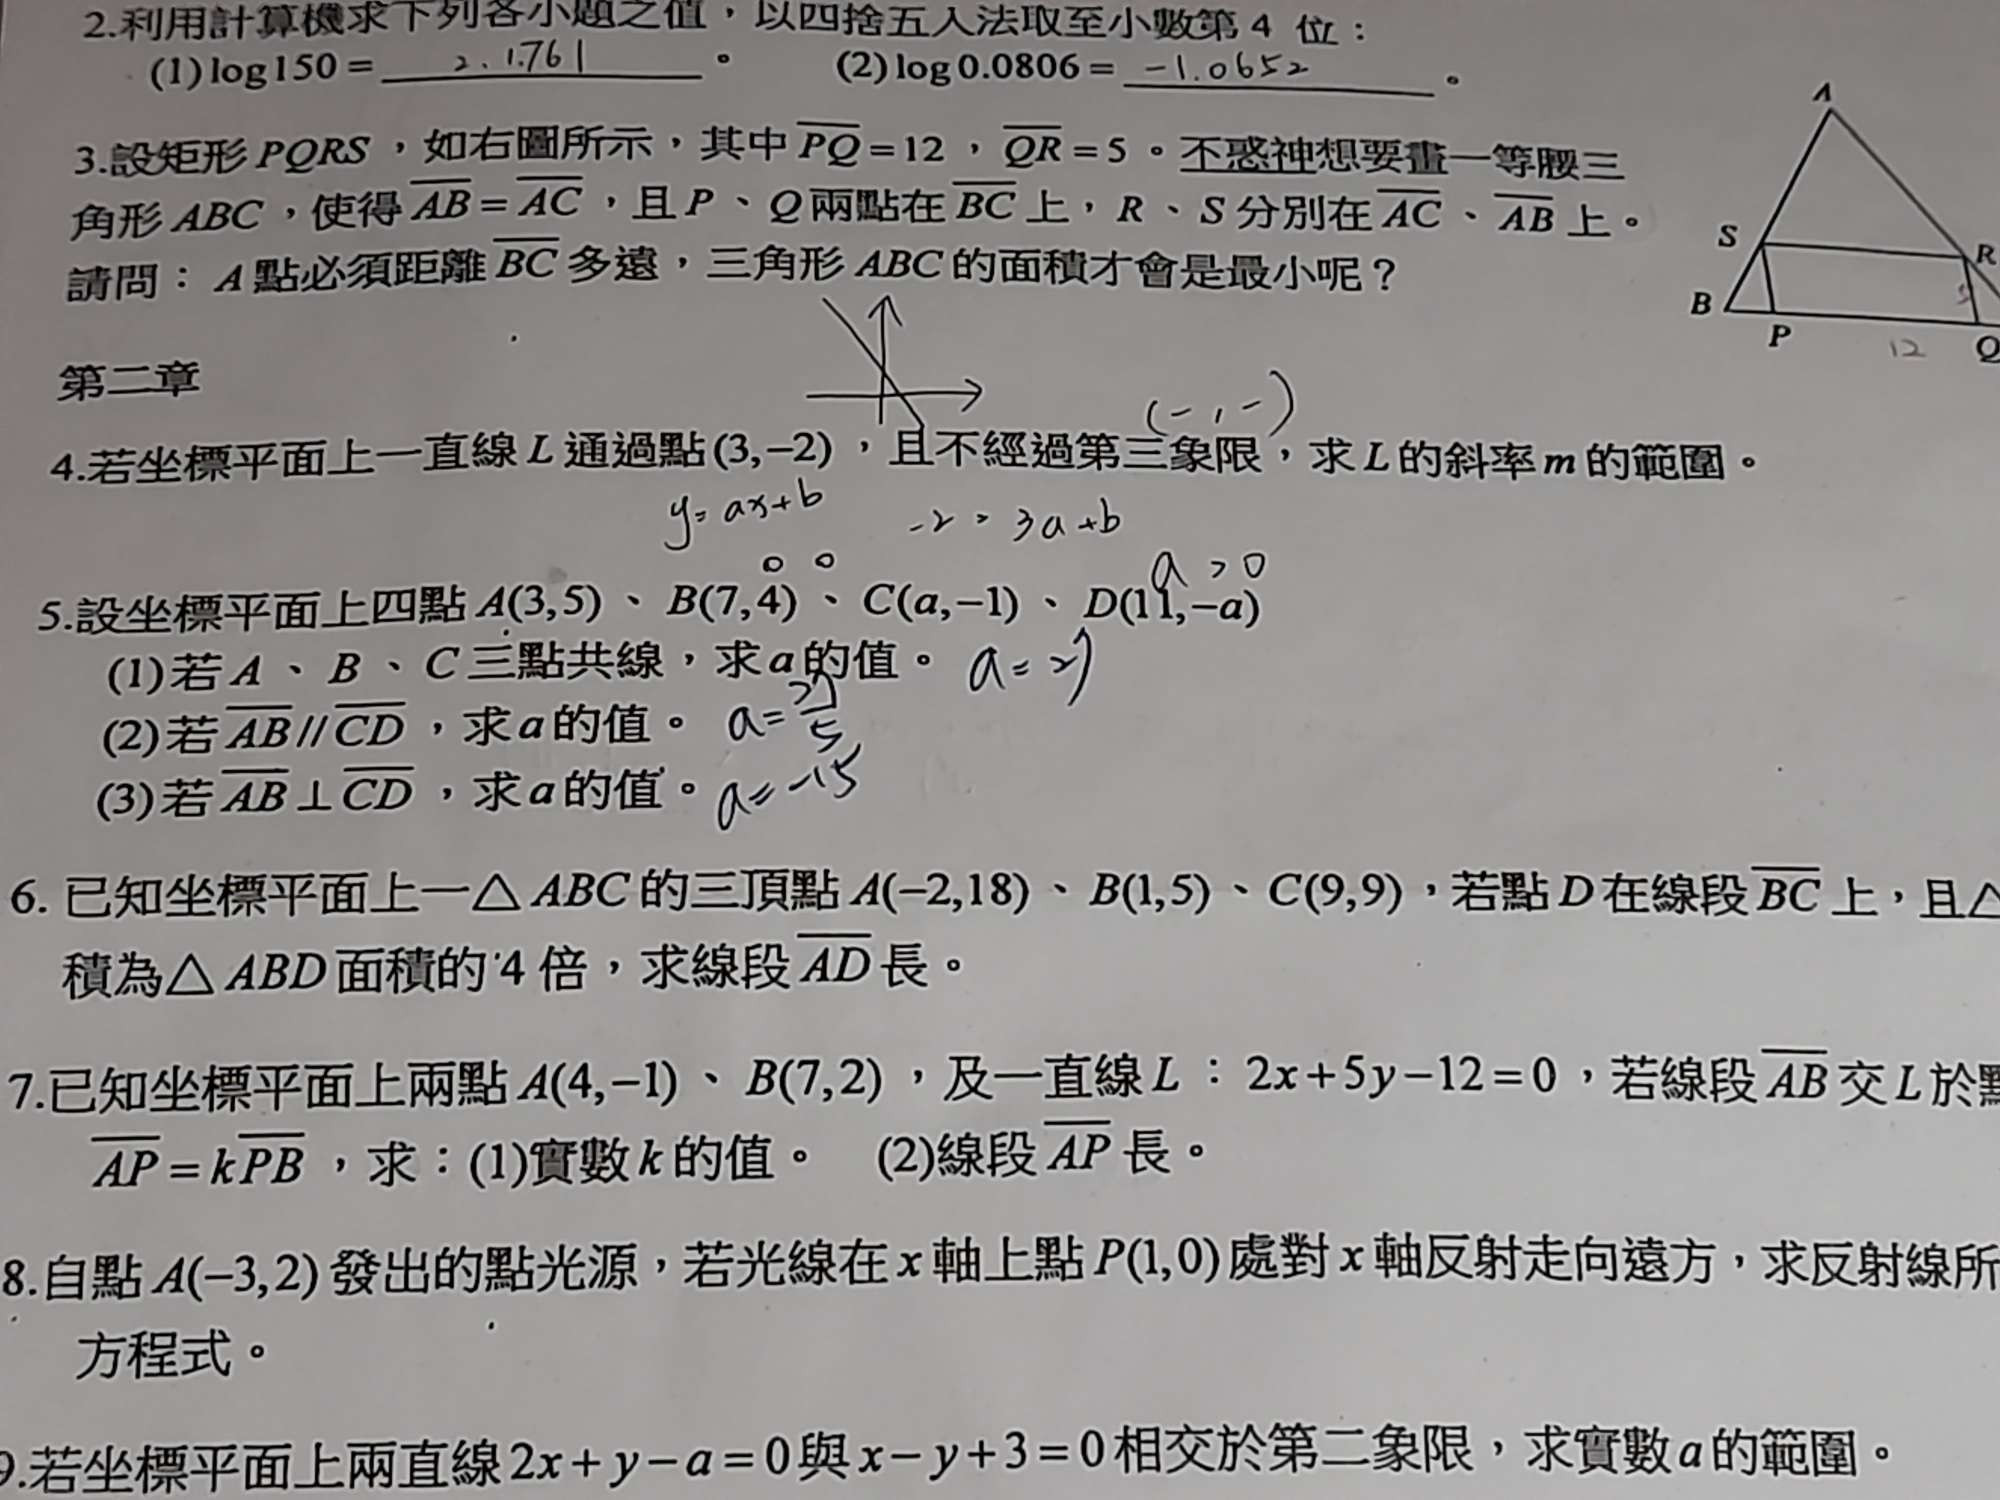 2.利用計算機求下列各小題之值，以四捨五入法取至小數第 4 位：
(1)log150 = 2.1761 。 (2)log0.0806 = -1.0652 。
3.設矩形PQRS，如右圖所示，其中PQ=12，QR=5。不惑神想要畫一等腰三
角形ABC，使得AB=AC，且P、Q兩點在BC上，R、S分別在AC、AB上。
請問：A點必須距離BC多遠，三角形ABC的面積才會是最小呢？
A
S
R
B
P
Q
5
12
第二章
(-,-)
4.若坐標平面上一直線L通過點(3,−2)，且不經過第三象限，求L的斜率m的範圍。
y=ax+b -2=3a+b
a>0
5.設坐標平面上四點A(3,5)、B(7,4)、C(a,−1)、D(11,−a)
(1)若A、B、C三點共線，求a的值。 a=27
(2)若AB//CD，求a的值。 a=27/5
(3)若AB⊥CD，求a的值。 a=-15
6. 已知坐標平面上一△ABC的三頂點A(−2,18)、B(1,5)、C(9,9)，若點D在線段BC上，且△
積為△ABD面積的4倍，求線段AD長。
7.已知坐標平面上兩點A(4,−1)、B(7,2)，及一直線L：2x+5y−12=0，若線段AB交L於點
AP=kPB，求：(1)實數k的值。 (2)線段AP長。
8.自點A(−3,2)發出的點光源，若光線在x軸上點P(1,0)處對x軸反射走向遠方，求反射線所
方程式。
9.若坐標平面上兩直線2x+y−a=0與x−y+3=0相交於第二象限，求實數a的範圍。